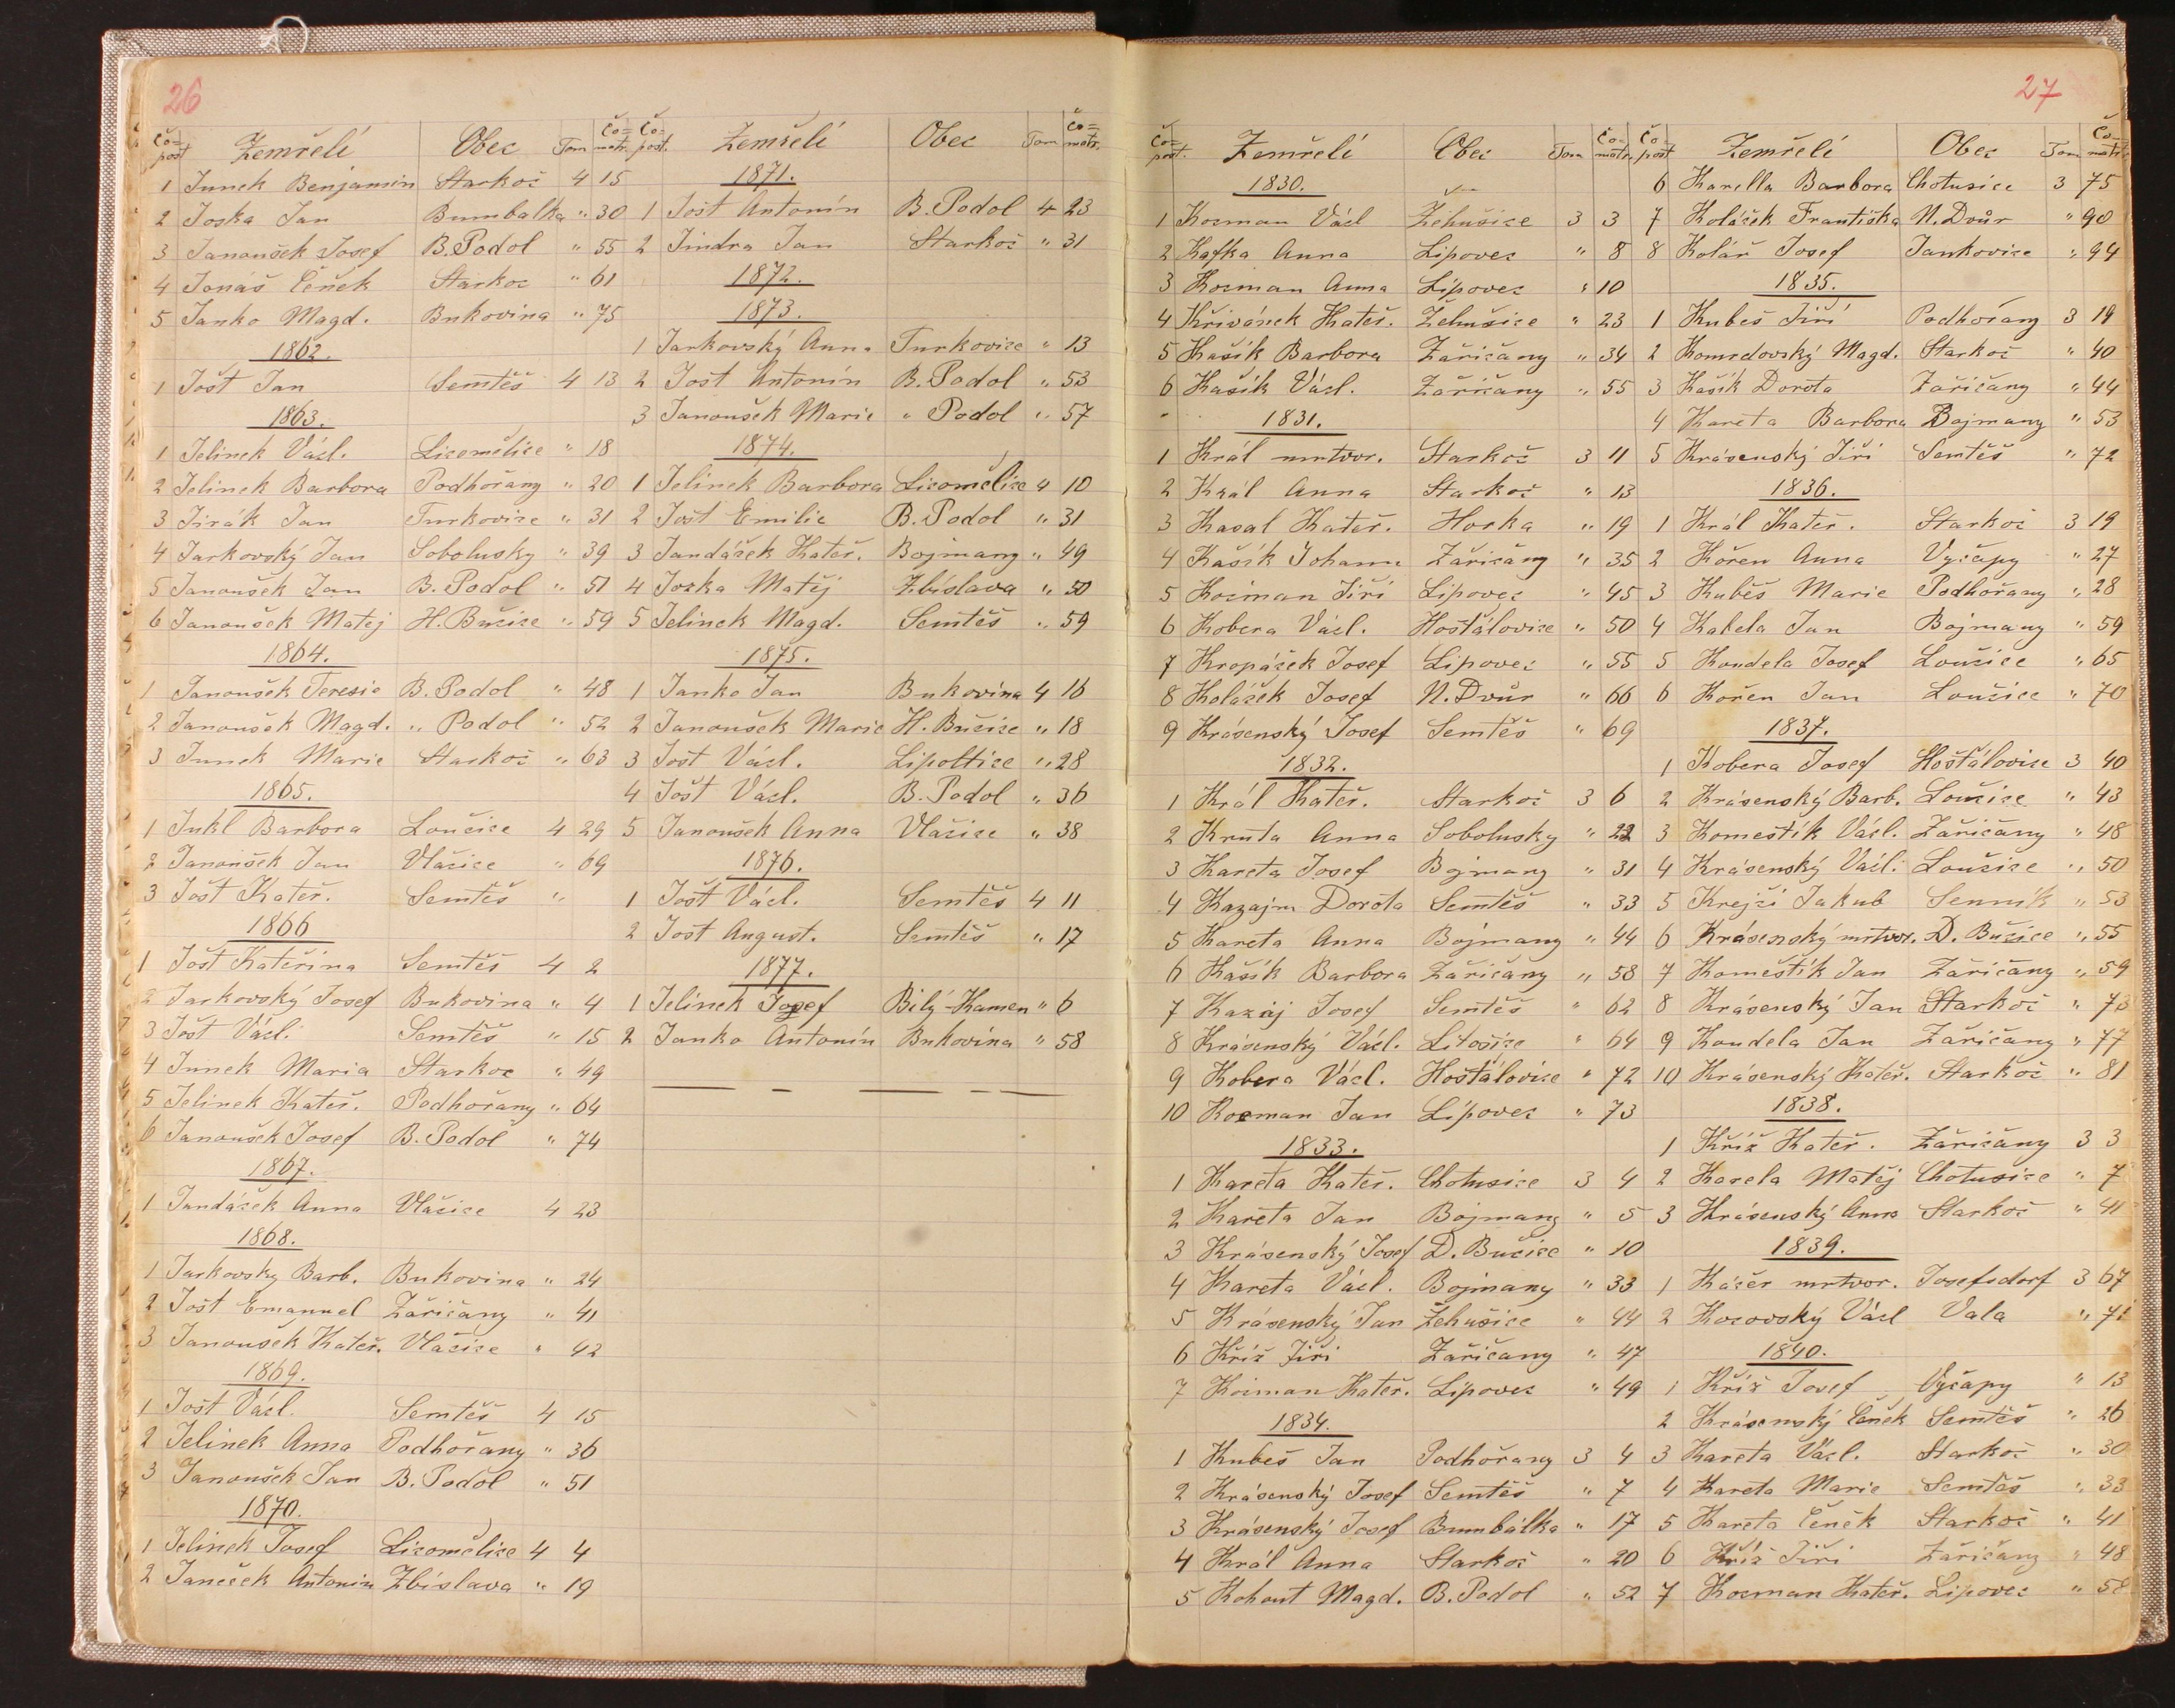 26
Čo= post Zemřelí Obec Tom Čo= matr.
1 Junek Benjamin Starkoč 4 15
2 Joska Jan Bumbalka " 30
3 Janoušek Josef B. Podol " 55
4 Jonáš Čeněk Starkoč " 61
5 Janko Magd. Bukovina " 75
1862.
1 Jošt Jan Semtěš 4 13
1863.
1 Jelinek Václ. Licomělice " 18
2 Jelinek Barbora Podhořany " 20
3 Jirák Jan Turkovice " 31
4 Jarkovský Jan Sobolusky " 39
5 Janoušek Jan B. Podol " 51
6 Janoušek Matěj H. Bučice " 59
1864.
1 Janoušek Teresie B. Podol " 48
2 Janoušek Magd. " Podol " 52
3 Junek Marie Starkoč " 63
1865.
1 Jukl Barbora Loučice 4 29
2 Janoušek Jan Vlačice " 69
3 Jošt Kateř. Semtěš "
1866
1 Jošt Kateřina Semtěš 4 2
2 Jarkovský Josef Bukovina " 4
3 Jošt Václ. Semtěš " 15
4 Junek Maria Starkoč " 49
5 Jelinek Kateř. Podhořany " 64
6 Janoušek Josef B. Podol " 74
1867.
1 Jandáček Anna Vlačice 4 23
1868.
1 Jarkovsky Barb. Bukovina " 24
2 Jošt Emanuel Zařičany " 41
3 Janousek Kateř. Vlačice " 42
1869.
1 Jošt Václ. Semtěš 4 15
2 Jelinek Anna Podhořany " 36
3 Janoušek Jan B. Podol " 51
1870.
1 Jelinek Josef Licomělice 4 4
2 Janeček Antonin Zbislava " 19
Čo= post. Zemřelí Obec Tom Čo= matr.
1871.
1 Jošt Antonín B. Podol 4 23
2 Jindra Jan Starkoč " 31
1872.
1873.
1 Jarkovský Anna Turkovice " 13
2 Jošt Antonín B. Podol " 53
3 Janoušek Marie " Podol " 57
1874.
1 Jelinek Barbora Licomělice 4 10
2 Jošt Emilie B. Podol " 31
3 Jandáček Kateř. Bojmany " 49
4 Joska Matěj Zbislava " 50
5 Jelinek Magd. Semtěš " 59
1875.
1 Janko Jan Bukovina 4 16
2 Janoušek Marie H. Bučice " 18
3 Jošt Václ. Lipoltice " 28
4 Jošt Václ. B. Podol " 36
5 Janoušek Anna Vlačice " 38
1876.
1 Jošt Václ. Semtěš 4 11
2 Jošt August. Semtěš " 17
1877.
1 Jelinek Josef Bilý-Kamen " 6
2 Janko Antonín Bukovina " 58
27
Čo= post. Zemřelí Obec Tom Čo= matr.
1830.
1 Kocman Václ Žehušice 3 3
2 Kafka Anna Lipovec " 8
3 Kocman Anna Lipovec " 10
4 Křivánek Kateř. Žehušice " 23
5 Kašík Barbora Zařičany " 34
6 Kašík Václ. Zařičany " 55
1831.
1 Král mrtvor. Starkoč 3 11
2 Král Anna Starkoč " 13
3 Kasal Kateř. Horka " 19
4 Kašík Johann Zařičany " 35
5 Kocman Jiří Lipovec " 45
6 Kobera Václ. Hošťálovice " 50
7 Kropáček Josef Lipovec " 55
8 Koláček Josef N. Dvůr " 66
9 Krásenský Josef Semtěš " 69
1832.
1 Král Kateř. Starkoč 3 6
2 Kruta Anna Sobolusky " 22
3 Kareta Josef Bojmany " 31
4 Kazajm Dorota Semtěš " 33
5 Kareta Anna Bojmany " 44
6 Kašík Barbora Zařičany " 58
7 Kazaj Josef Semtěš " 62
8 Krásenský Václ. Litošice " 64
9 Kobera Václ. Hošťálovice " 72
10 Kocman Jan Lipovec " 73
1833.
1 Kareta Kateř. Chotusice 3 4
2 Kareta Jan Bojmany " 5
3 Krásenský Josef D. Bučice " 10
4 Kareta Václ. Bojmany " 33
5 Krásenský Jan Žehušice " 44
6 Kříž Jiři Zařičany " 47
7 Kocman Kateř. Lipovec " 49
1834.
1 Kubeš Jan Podhořany 3 4
2 Krásenský Josef Semtěš " 7
3 Krásenský Josef Bumbálka " 17
4 Král Anna Starkoč " 20
5 Kohout Magd. B. Podol " 52
Čo= post Zemřelí Obec Tom Čo= matr.
6 Karella Barbora Chotusice 3 75
7 Koláčik Františka N. Dvůr " 90
8 Kolář Josef Jankovice " 94
1835.
1 Kubeš Jiří Podhořany 3 19
2 Komrdovský Magd. Starkoč " 40
3 Kašík Dorota Zařičany " 44
4 Kareta Barbora Bojmany " 53
5 Krásenský Jiří Semtěš " 72
1836.
1 Král Kateř. Starkoč 3 19
2 Kořen Anna Vyčapy " 27
3 Kubeš Marie Podhořany " 28
4 Kabela Jan Bojmany " 59
5 Koudela Josef Loučice " 65
6 Kořen Jan Loučice " 70
1837.
1 Kobera Josef Hošťálovice 3 40
2 Krásenský Barb. Loučice " 43
3 Komeštík Václ. Zařičany " 48
4 Krásenský Václ. Loučice " 50
5 Krejčí Jakub Senník " 53
6 Krásenský mrtvor. D. Bučice " 55
7 Komeštík Jan Zařičany " 59
8 Krásenský Jan Starkoč " 73
9 Koudela Jan Zařičany " 77
10 Krásenský Kateř. Starkoč " 81
1838.
1 Kříž Kateř. Zařičany 3 3
2 Karela Matěj Chotusice " 7
3 Krásenský Anna Starkoč " 41
1839.
1 Káčer mrtvor. Josefsdorf 3 67
2 Kosovský Václ Vala " 71
1840.
1 Kříž Josef Vyčapy " 13
2 Krásenský Čeněk Semtěš " 26
3 Kareta Václ. Starkoč " 30
4 Kareta Marie Semtěš " 33
5 Kareta Čeněk Starkoč " 41
6 Kříž Jiři Zařičany " 48
7 Kocman Kateř. Lipovec " 58